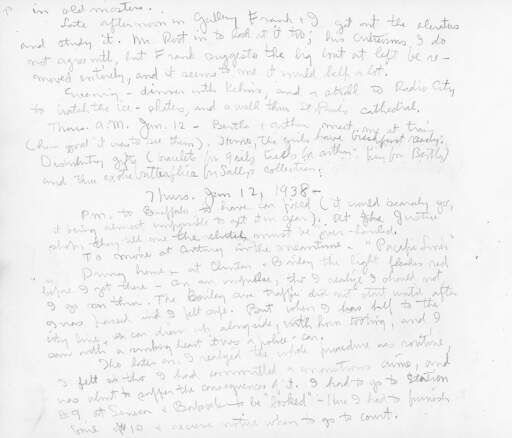 in old masters..
Late afternoon in Gallery Frank & I get out the elevators
and study it. Mr. Rost in to look at it too; his criticisms I do
not agree with, but Frank suggests the big boat at left be re-
moved entirely, and it seems to me it would help a lot.
Evening - dinner with and a stroll to Radio City
to watch the ice-skaters, and a walk thru St. Pauls Cathedral.
Thurs. A.M. Jan. 12 - Bertha & Arthur meet me at train
(how good it was to see them). Home, the girls have breakfast ready.
gifts (bracelets for girls, for Arthur, for Bertha)
and three exotic butterflies for Sallys collection.
Thurs. Jan 12, 1938 -
P.m. to Buffalo to have car fixed (it would scarcely go,
it being almost impossible to get it in gear). At the
shop, they tell me the clutch must be over-hauled.
To movie at Century in the meantime. "Pacific Liner"
Driving home - at Clinton - Bailey the light flashes red
before I got there - on an impulse, tho I realize I should not
I go on thru. The Bailey ave traffic did not start until after
I was passed and I felt safe. But when I was half to the
city line, a car drew up alongside, with horn tooting, and I
saw with a sinking heart it was a police-car.
Tho later on I realized the whole procedure as routine,
I felt as tho I had committed a monstrous crime, and
was about to suffer the consequences of it. I had to go to Station
#9 at Seneca & Babcock to be "booked" - Here I had to furnish
some $10 & receive notice when to go to court.